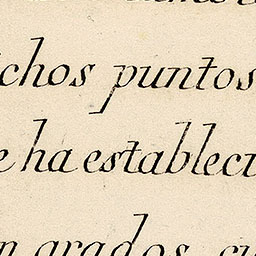 chos puntos
e ha establec
n grados, cu